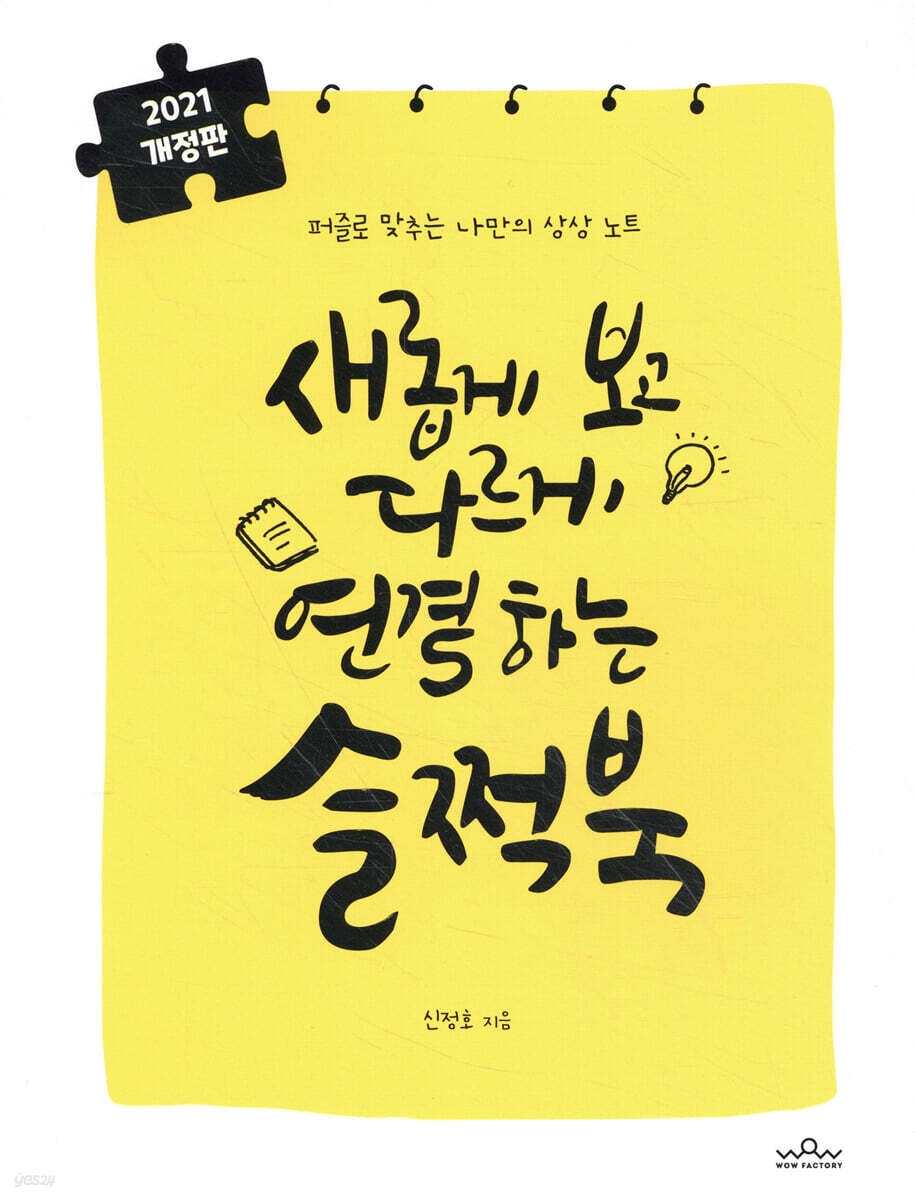 2021
개정판
퍼즐로 맞추는 나만의 상상 노트
새롭게 보고
다르게
연결하는
슬쩍북
신정호 지음
WOW
WOW FACTORY
yes24